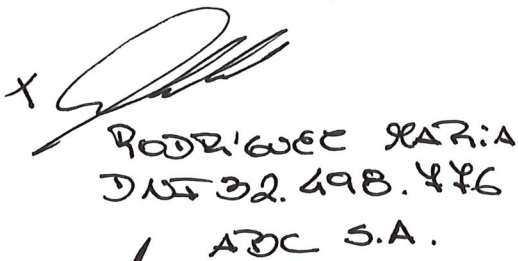 X
RODRÍGUEZ MARIA
DNI 32.498.776
ABC S.A.